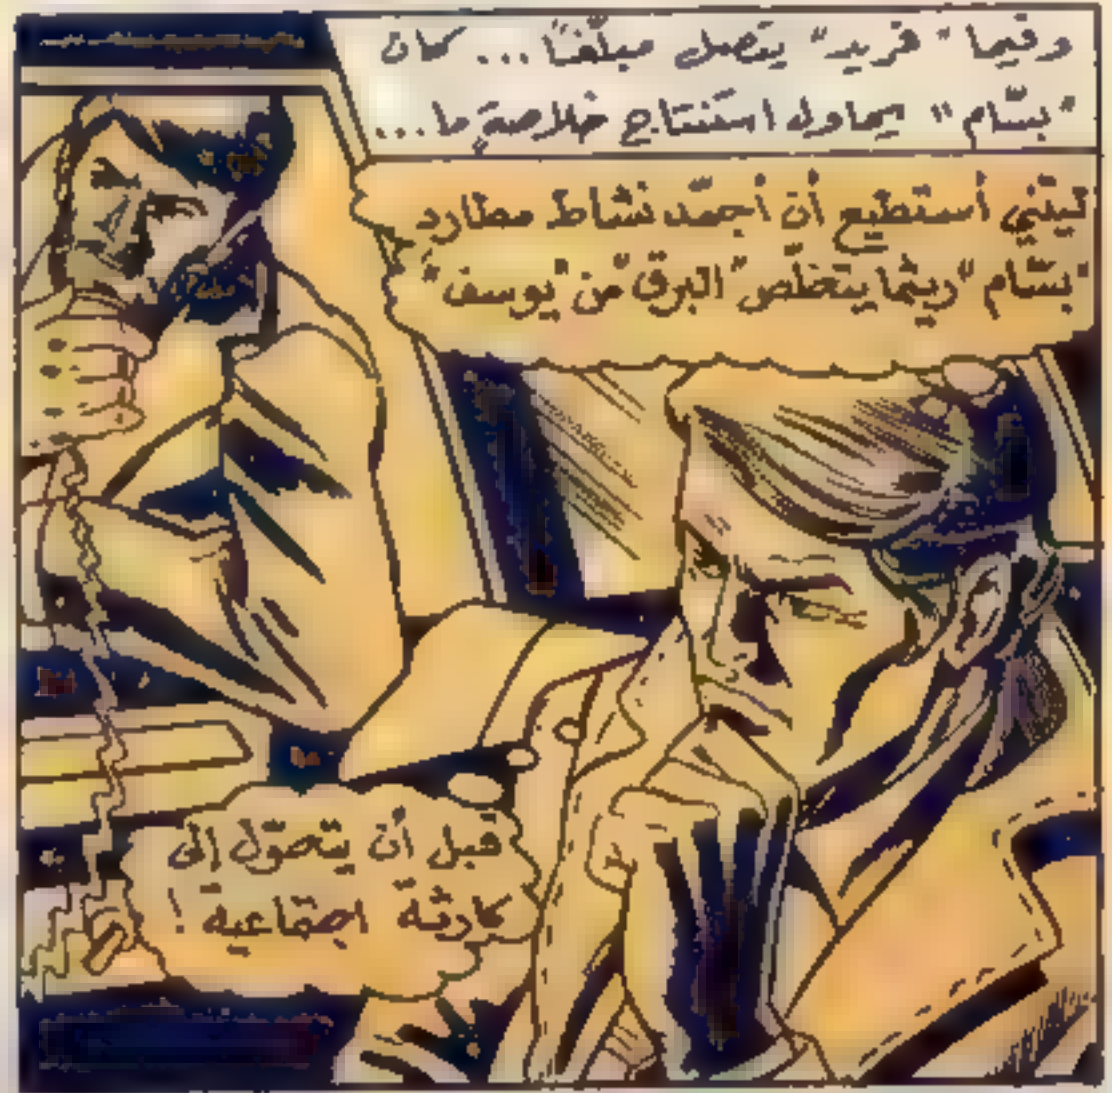 وفيما "فريد" يتصل مبلّغاً... كان
"بسّام" يحاول استنتاج خلاصةٍ ما...
ليتني أستطيع أن أجمّد نشاط مطارد
"بسّام" ريثما يتخلّص "البرق" من "يوسف"
قبل أن يتحوّل إلى
كارثة اجتماعية!